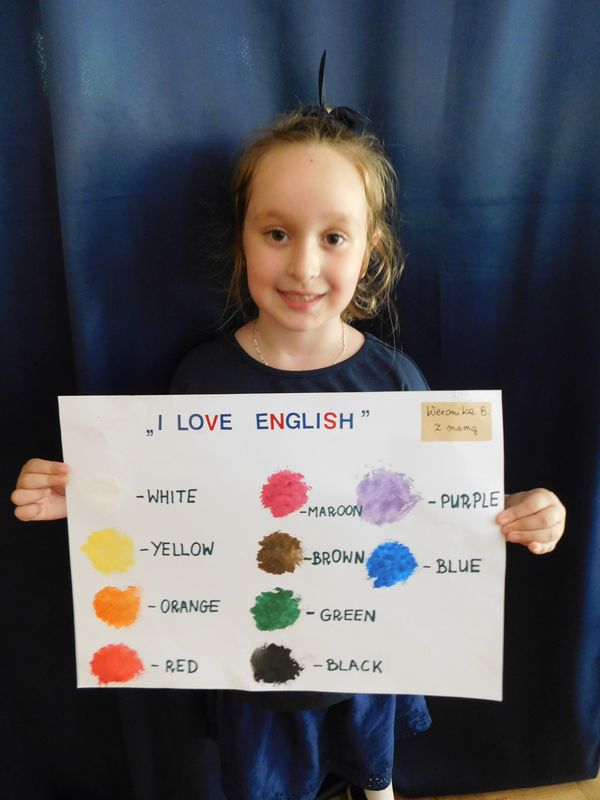 „I LOVE ENGLISH”
Weronika B.
z mamą
-WHITE
-YELLOW
-ORANGE
-RED
-MAROON
-BROWN
-GREEN
-BLACK
-PURPLE
-BLUE